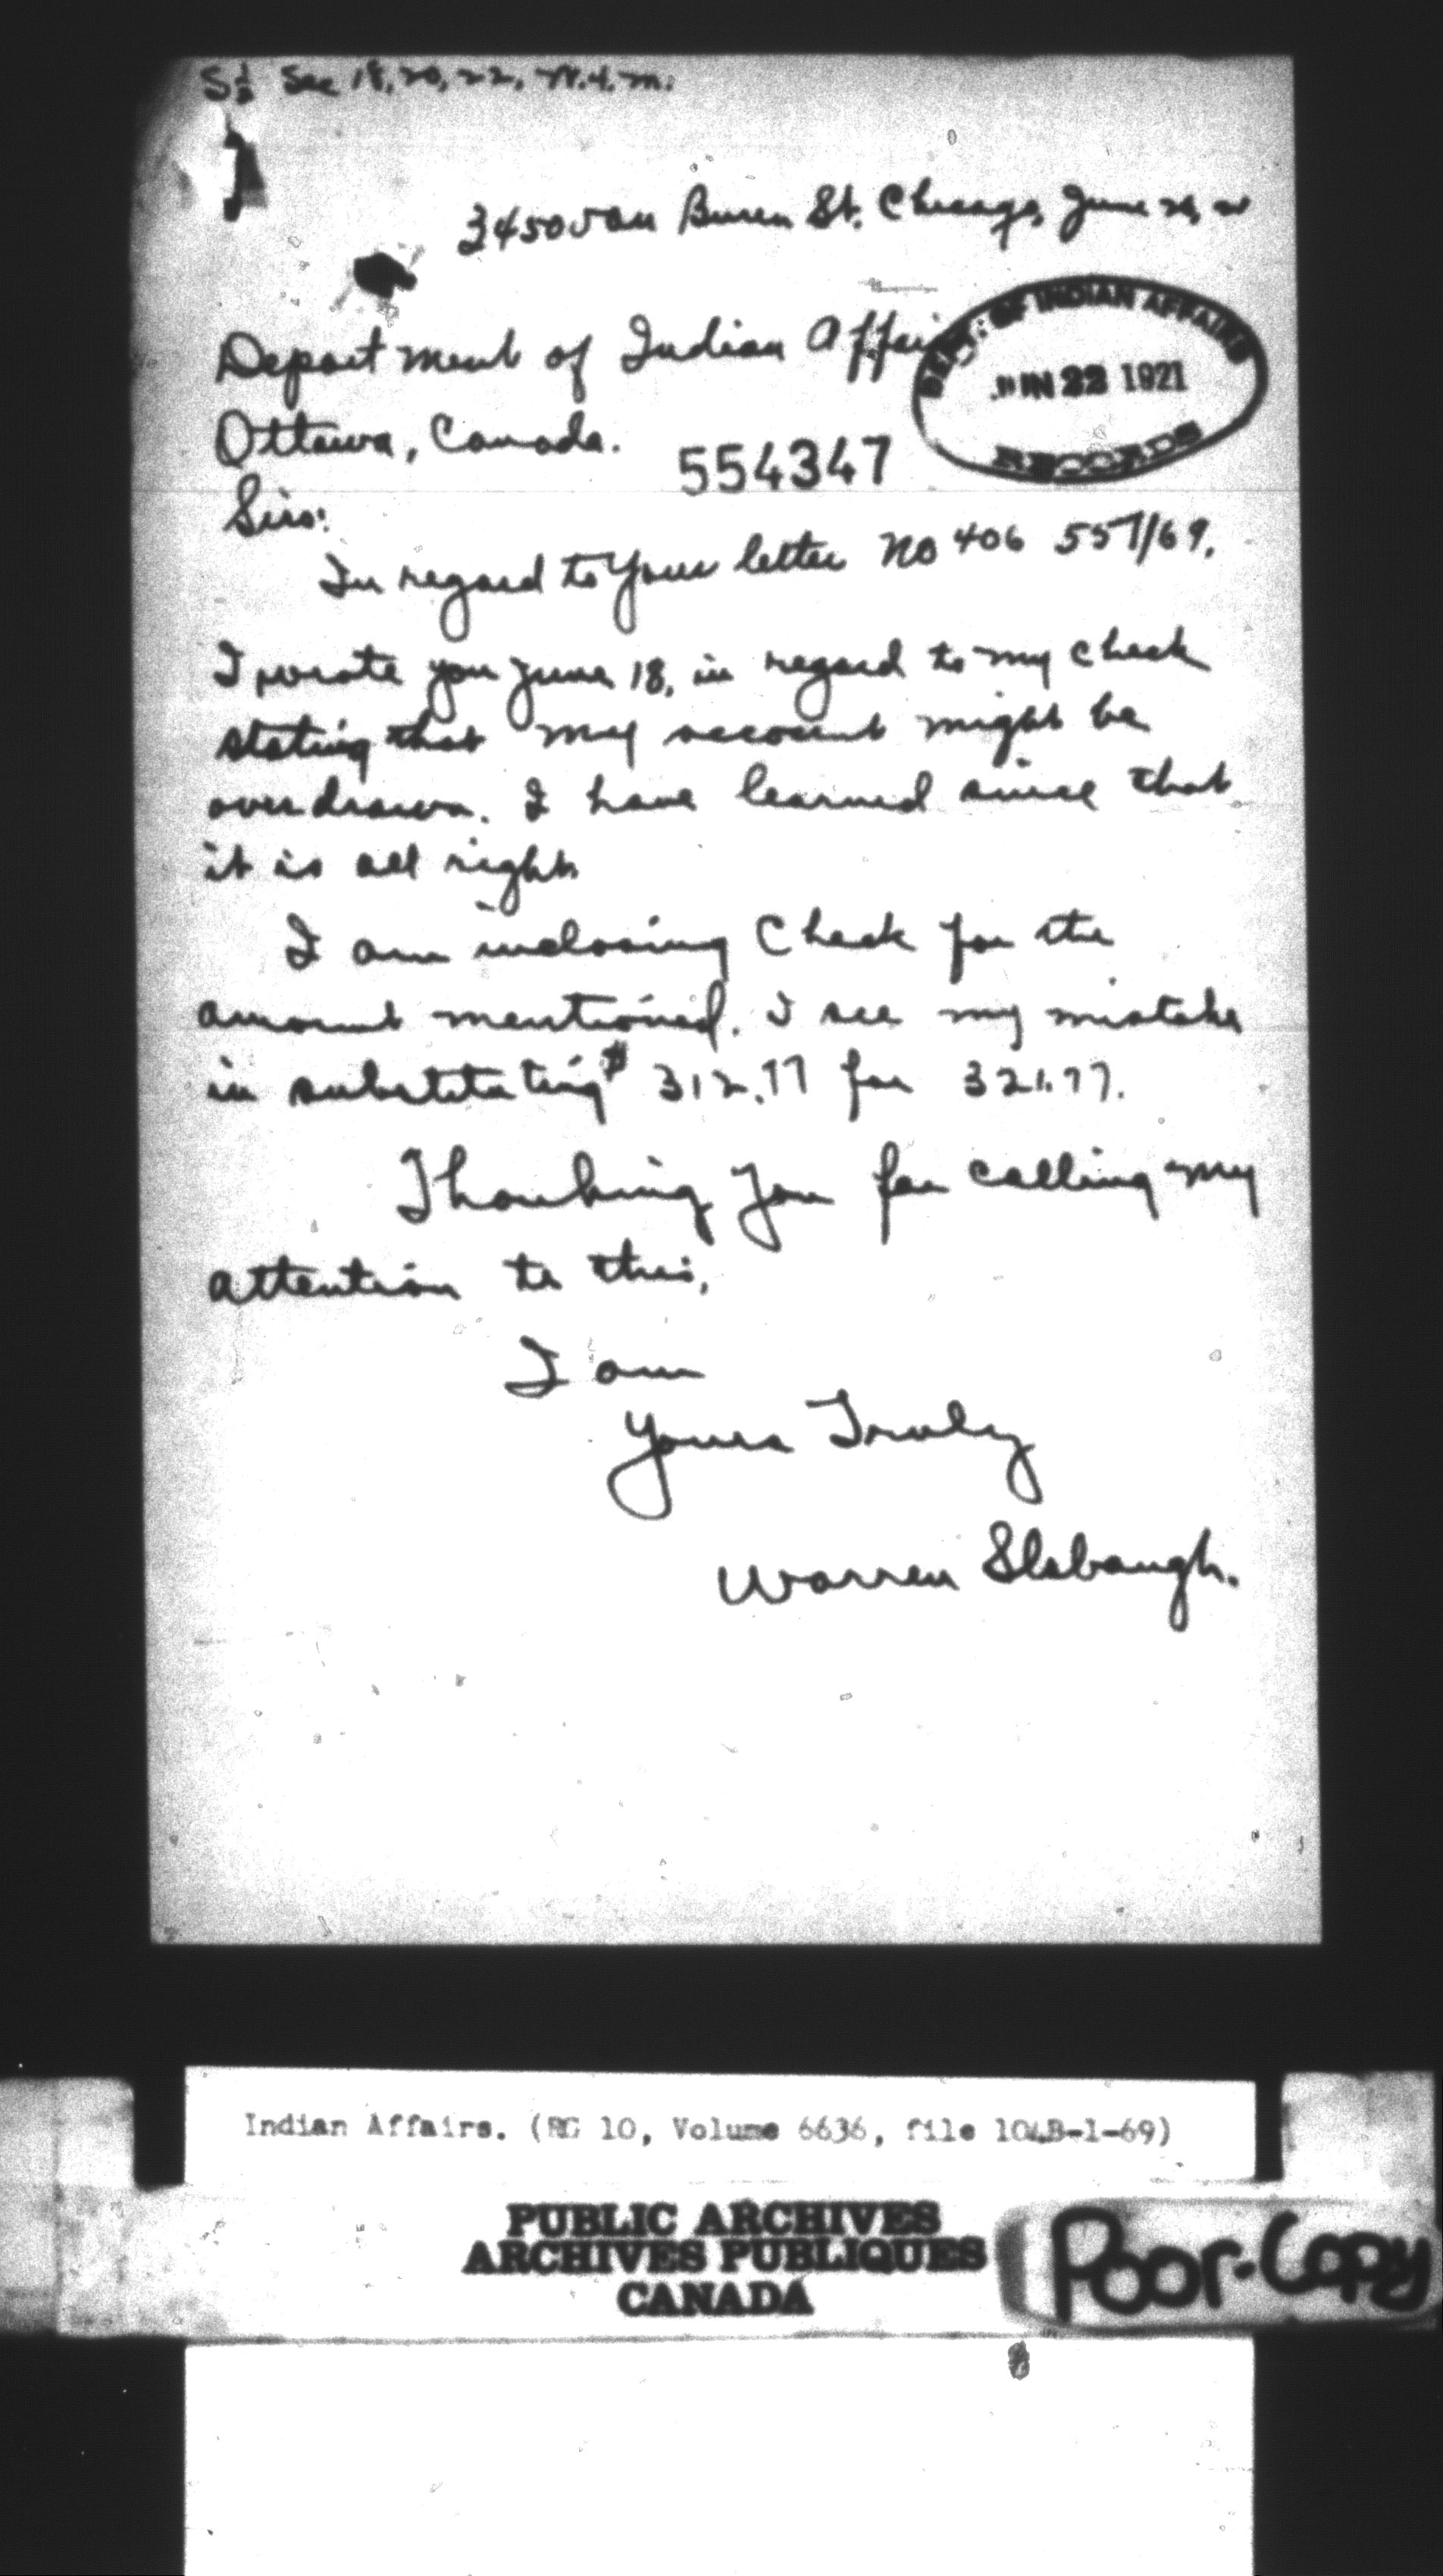 S½ Sec 18, 20, 22, W.4.m.
3450 Van Buren St. Chicago, June 20, 21
Department of Indian Affairs
DEPT: OF INDIAN AFFAIRS
JUN 22 1921
RECORDS
Ottawa, Canada.
554347
Sirs:
In regard to your letter no 406 557/69.
I wrote you June 18, in regard to my check
stating that my account might be
overdrawn. I have learned since that
it is all right.
I am inclosing Check for the
amount mentioned. I see my mistake
in substituting $312.77 for 321.77.
Thanking you for calling my
attention to this,
I am
Yours Truly
Warren Slabaugh.
Indian Affairs. (RG 10, Volume 6636, file 104B-1-69)
PUBLIC ARCHIVES
ARCHIVES PUBLIQUES
CANADA
Poor-Copy